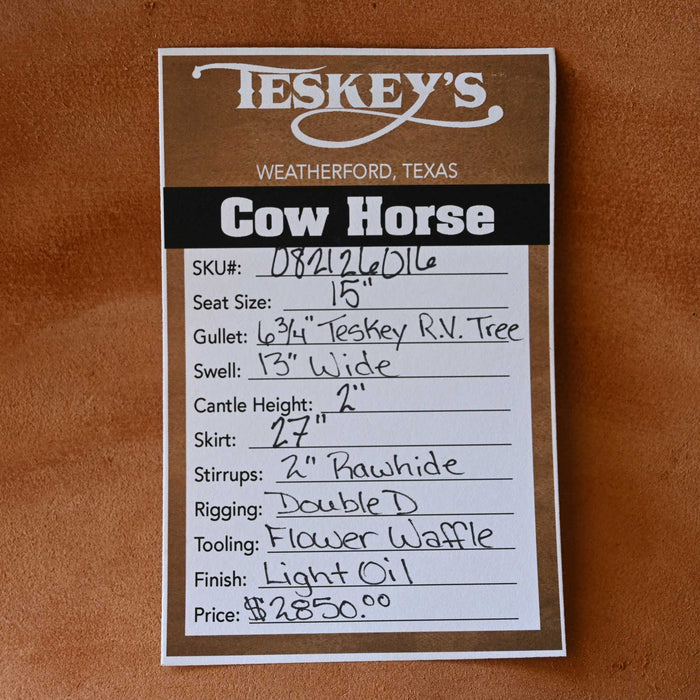 TESKEY'S
WEATHERFORD, TEXAS
COW HORSE
SKU#: 082126016
Seat Size: 15"
Gullet: 6 3/4" Teskey R.V. Tree
Swell: 13" Wide
Cantle Height: 2"
Skirt: 27"
Stirrups: 2" Rawhide
Rigging: Double D
Tooling: Flower Waffle
Finish: Light Oil
Price: $2850.00